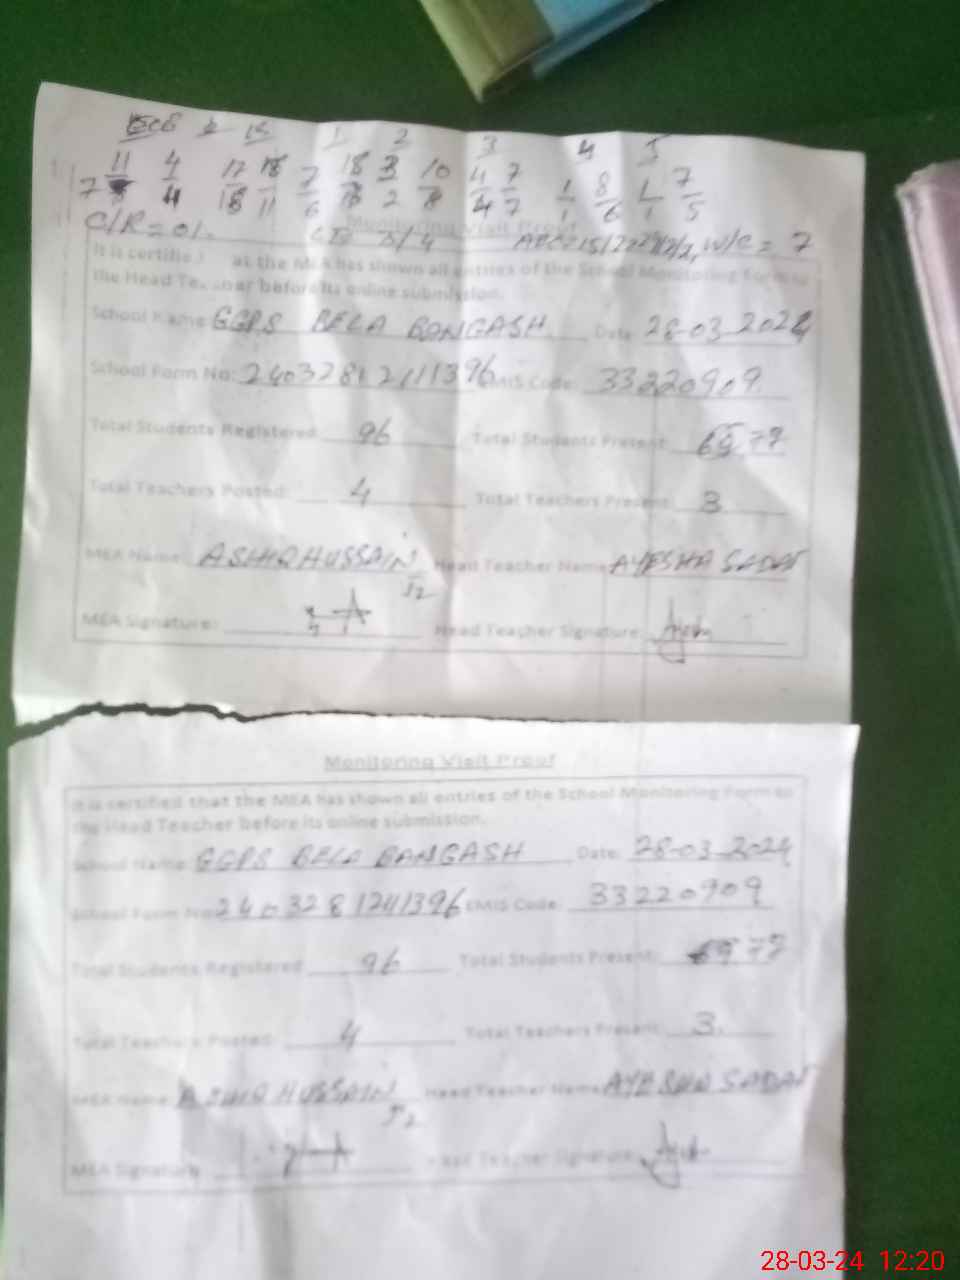 1 2 3 4 5
11 4 17 18 7 18 3 10 4 7 1 8 1 7
7 4 18 11 6 2 8 4 7 1 6 1 5
C/R=01. W/C = 7
Monitoring Visit Proof
It is certified at the MEA has shown all entries of the School Monitoring Form to
the Head Teacher before its online submission.
School Name: GGPS BELA BANGASH Date: 28-03-2024
School Form No: EMIS Code: 33220909
Total Students Registered: 96 Total Students Present: 77
Total Teachers Posted: 4 Total Teachers Present: 3
MEA Name: ASHIQ HUSSAIN Head Teacher Name: AYESHA SADAF
52
MEA Signature: Head Teacher Signature:
Monitoring Visit Proof
It is certified that the MEA has shown all entries of the School Monitoring Form to
the Head Teacher before its online submission.
School Name: GGPS BELA BANGASH Date: 28-03-2024
School Form No: 2403281241396 EMIS Code: 33220909
Total Students Registered: 96 Total Students Present: 77
Total Teachers Posted: 4 Total Teachers Present: 3.
MEA Name: ASHIQ HUSSAIN Head Teacher Name: AYESHA SADAF
52
MEA Signature: Head Teacher Signature:
28-03-24 12:20